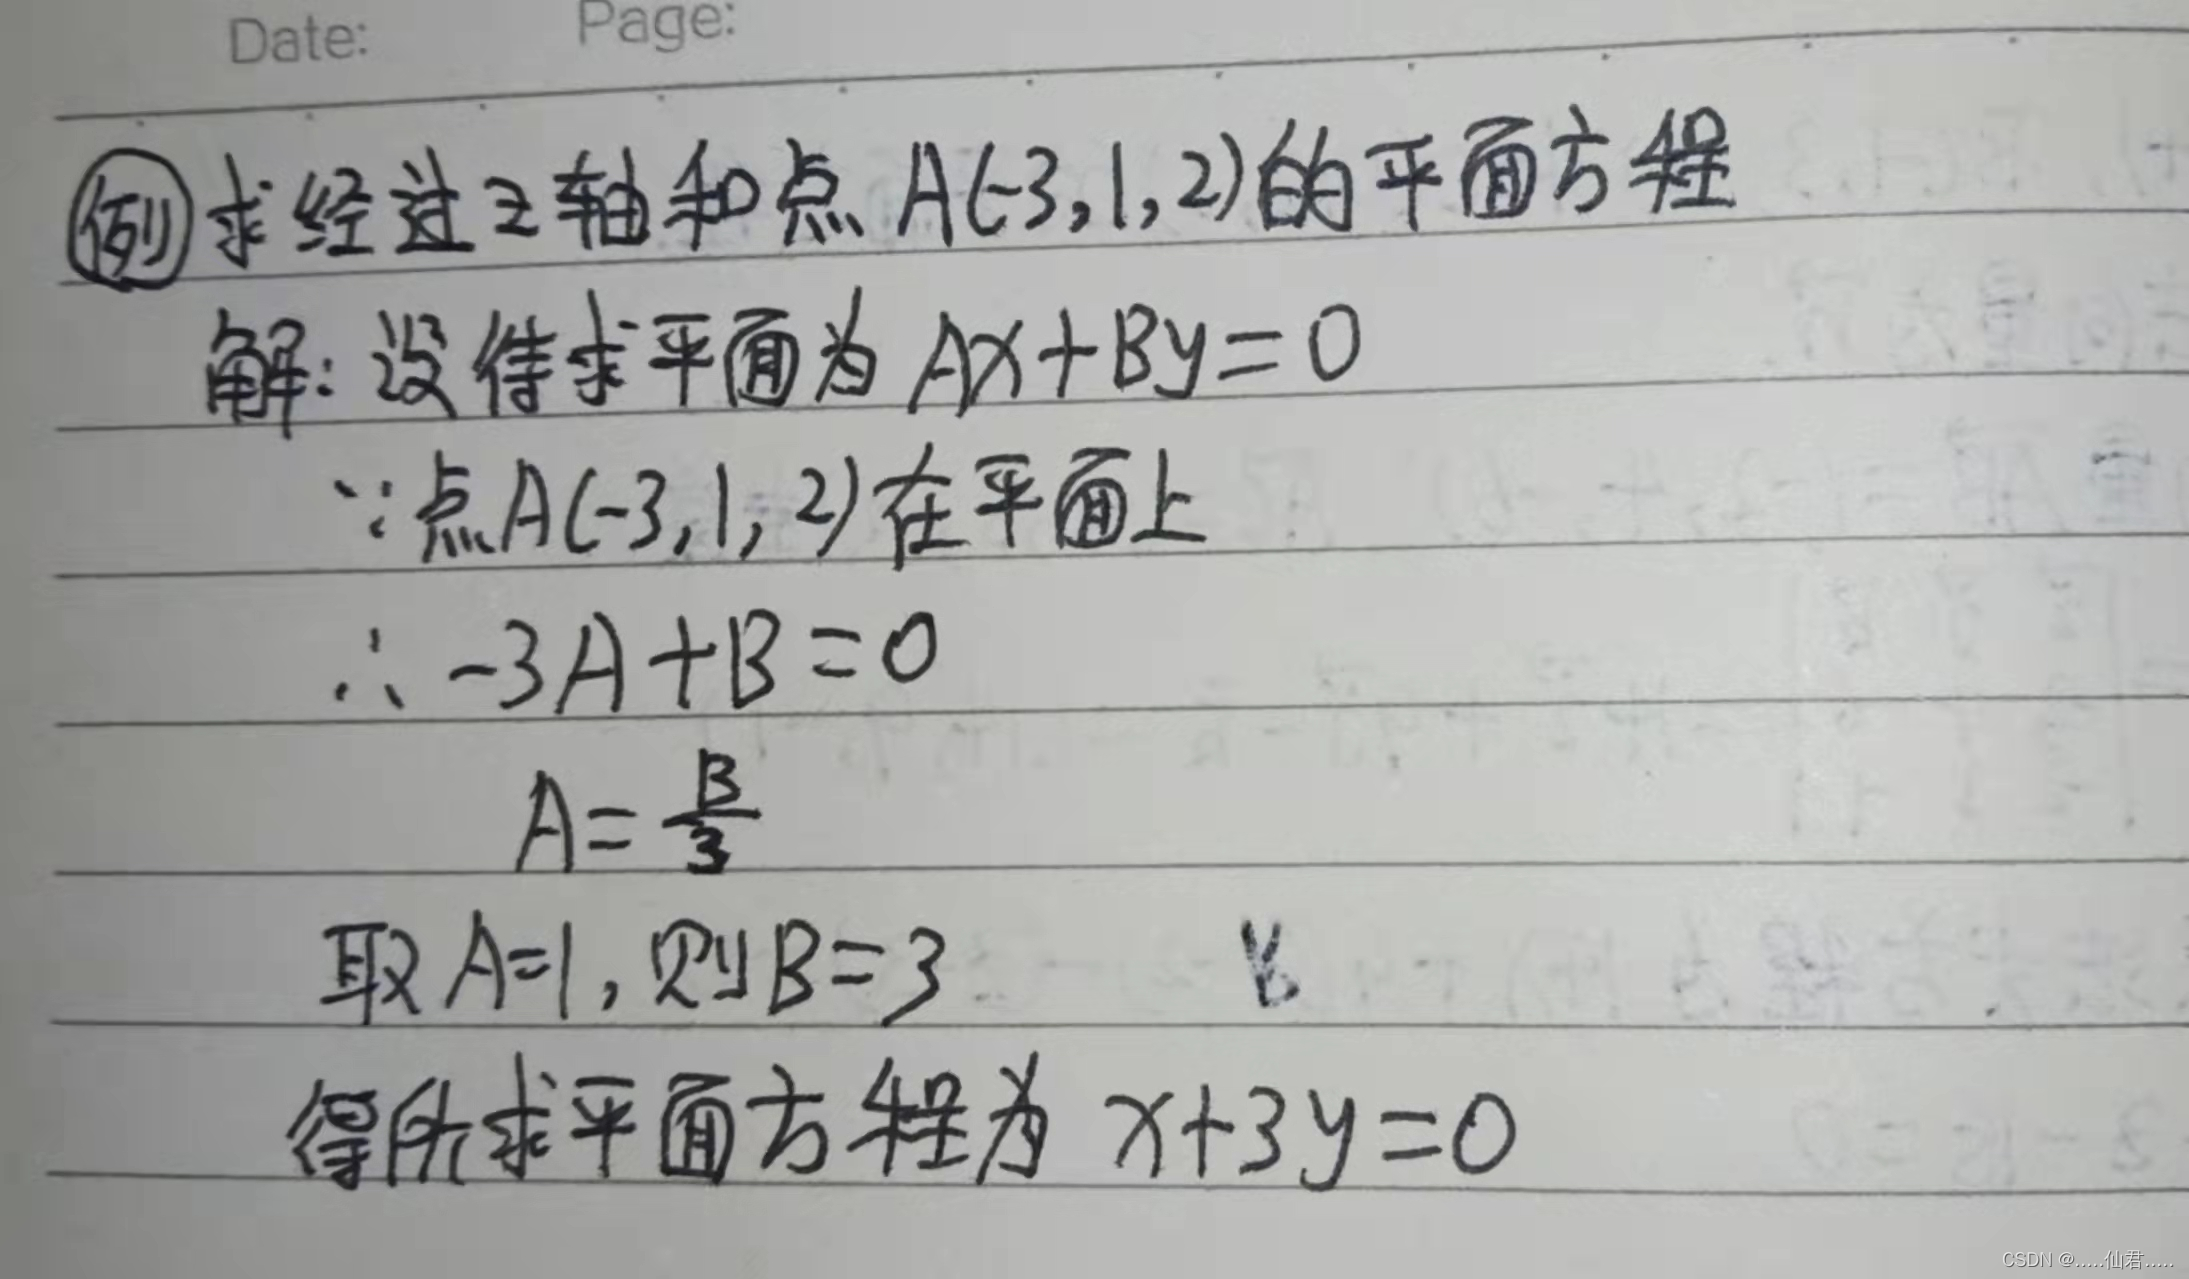 Date: Page:
例 求经过z轴和点A(-3,1,2)的平面方程
解:设待求平面为Ax+By=0
∵点A(-3,1,2)在平面上
∴-3A+B=0
A=B/3
取A=1,则B=3
得所求平面方程为 x+3y=0
CSDN @.....仙君.....